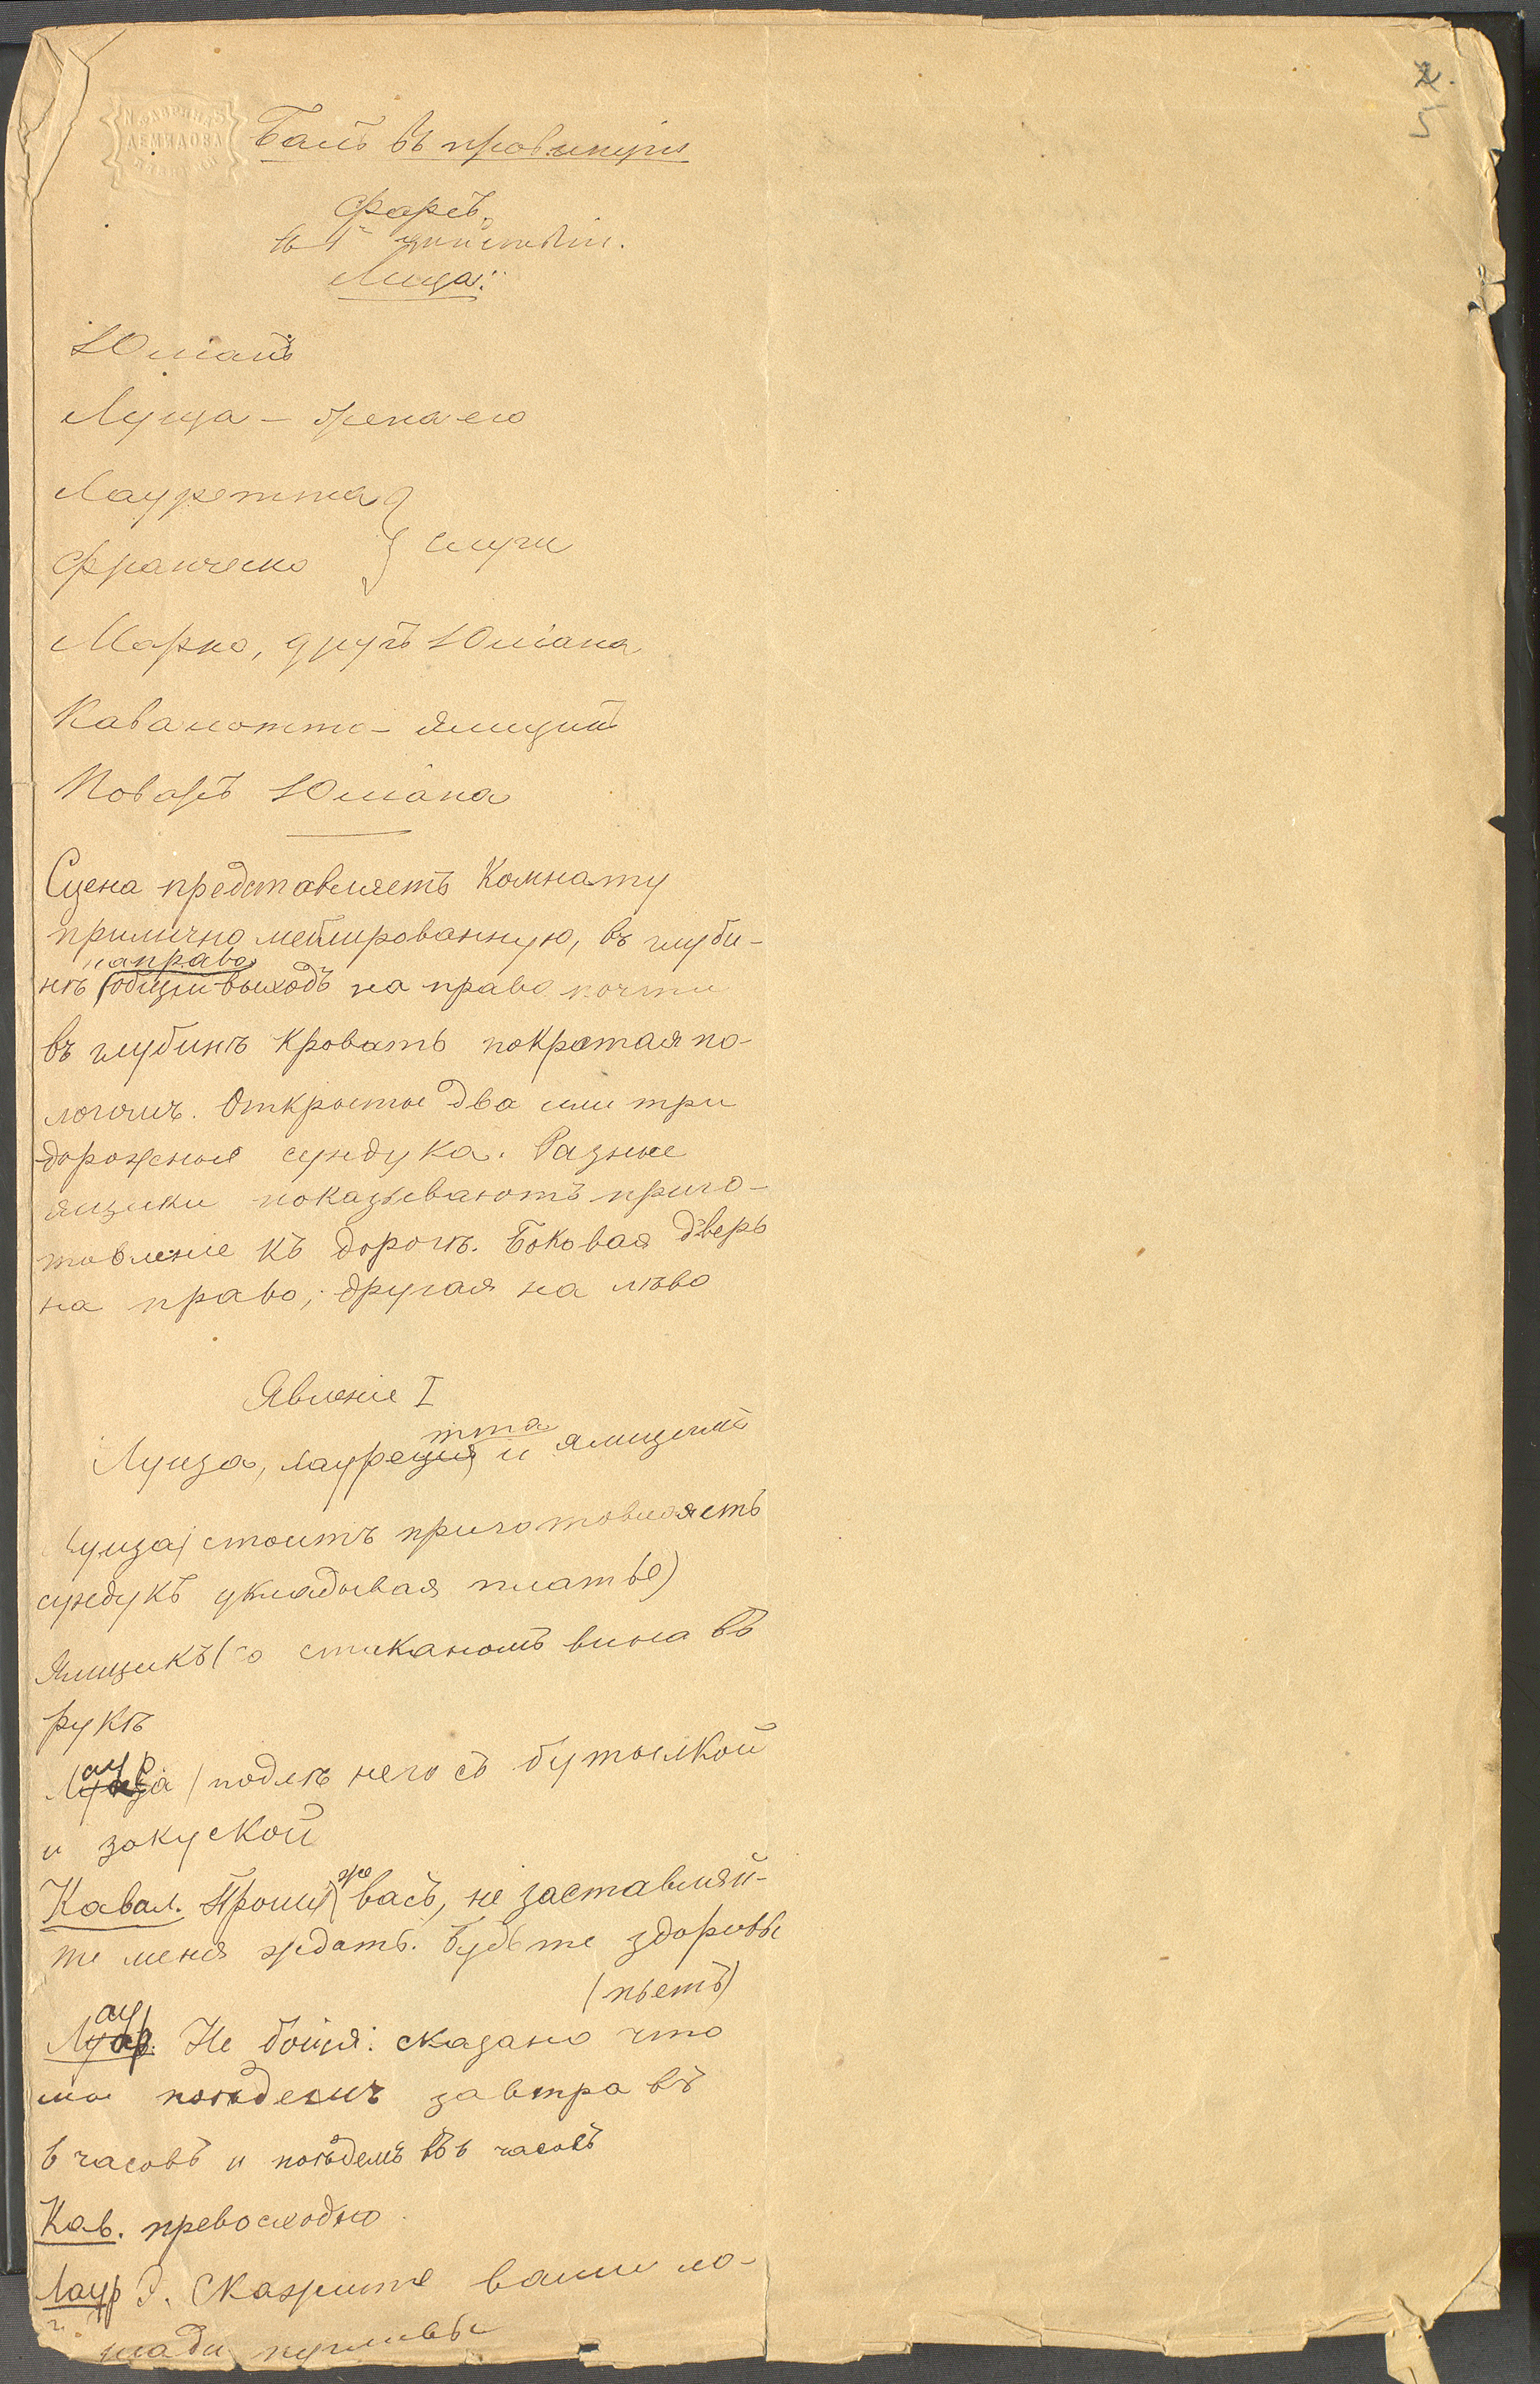 2.
5
Балъ въ провинціи
Фарсъ.
въ 1м дѣйствіи.
Лица:
Юліанъ
Луиза – жена его
Лауретта
слуги
Франческо
Марко, другъ Юліана
Каваллотти – ямщикъ
Поваръ Юліана
Сцена представляетъ комнату
прилично меблированную, въ глуби-
направо
нѣ общій выходъ на право почти
въ глубинѣ кровать покрытая по-
логомъ. Открытые два или три
дорожные сундука. Разные
ящики показываютъ приго-
товленіе къ дорогѣ. Боковая дверь
на право, другая на лѣво
Явленіе I
тта
Луиза, Лауреція и ямщикъ
Луиза (стоитъ приготовляетъ
сундукъ укладывая платье)
Ямщикъ (со стаканомъ вина въ
рукѣ
Лаур (подлѣ него съ бутылкой
и закуской
Кавал. Прошу же васъ, не заставляй-
те меня ждать. Будьте здоровы
(пьетъ)
Лаур. Не бойся: сказано что
мы поѣдемъ завтра въ
6 часовъ и поѣдемъ въ 6 часовъ
Кав. превосходно
Лаур. Скажите ваши ло-
шади пугливы